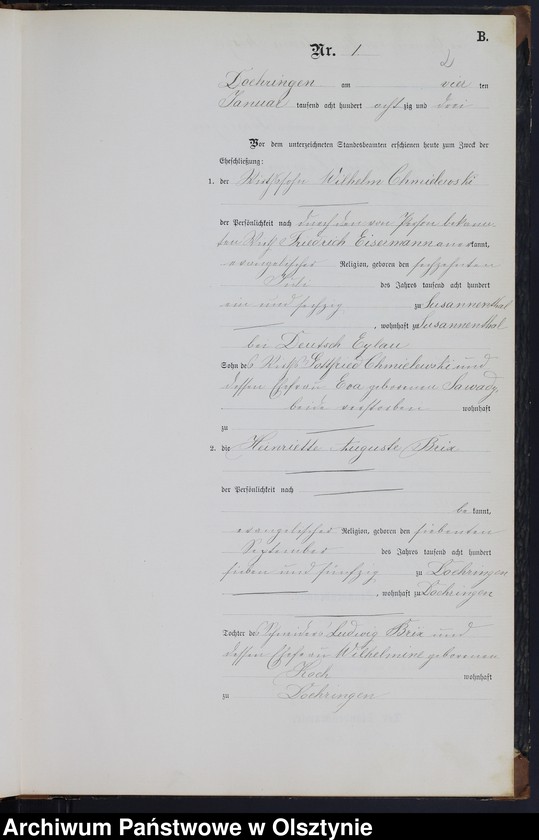 B.
Nr. 1
Doehringen am vier ten
Januar tausend acht hundert acht zig und drei
Vor dem unterzeichneten Standesbeamten erschienen heute zum Zweck der
Eheschließung:
1. der Wirthssohn Wilhelm Chmielewski
der Persönlichkeit nach durch den von Person bekann-
ten Wirth Friedrich Eisermann anerkannt,
evangelischer Religion, geboren den sechzehnten
Juli des Jahres tausend acht hundert
ein und sechzig zu Susannenthal
, wohnhaft zu Susannenthal
bei Deutsch Eylau
Sohn des Wirths Gottfried Chmielewski und
dessen Ehefrau Eva geborenen
beide verstorben wohnhaft
zu
2. die Henriette Auguste Brix
der Persönlichkeit nach
be kannt,
evangelischer Religion, geboren den siebenten
September des Jahres tausend acht hundert
sieben und fünfzig zu Doehringen
, wohnhaft zu Doehringen
Tochter des Schneiders Ludwig Brix und
dessen Ehefrau Wilhelmine geborenen
Koch wohnhaft
zu Doehringen
Archiwum Państwowe w Olsztynie